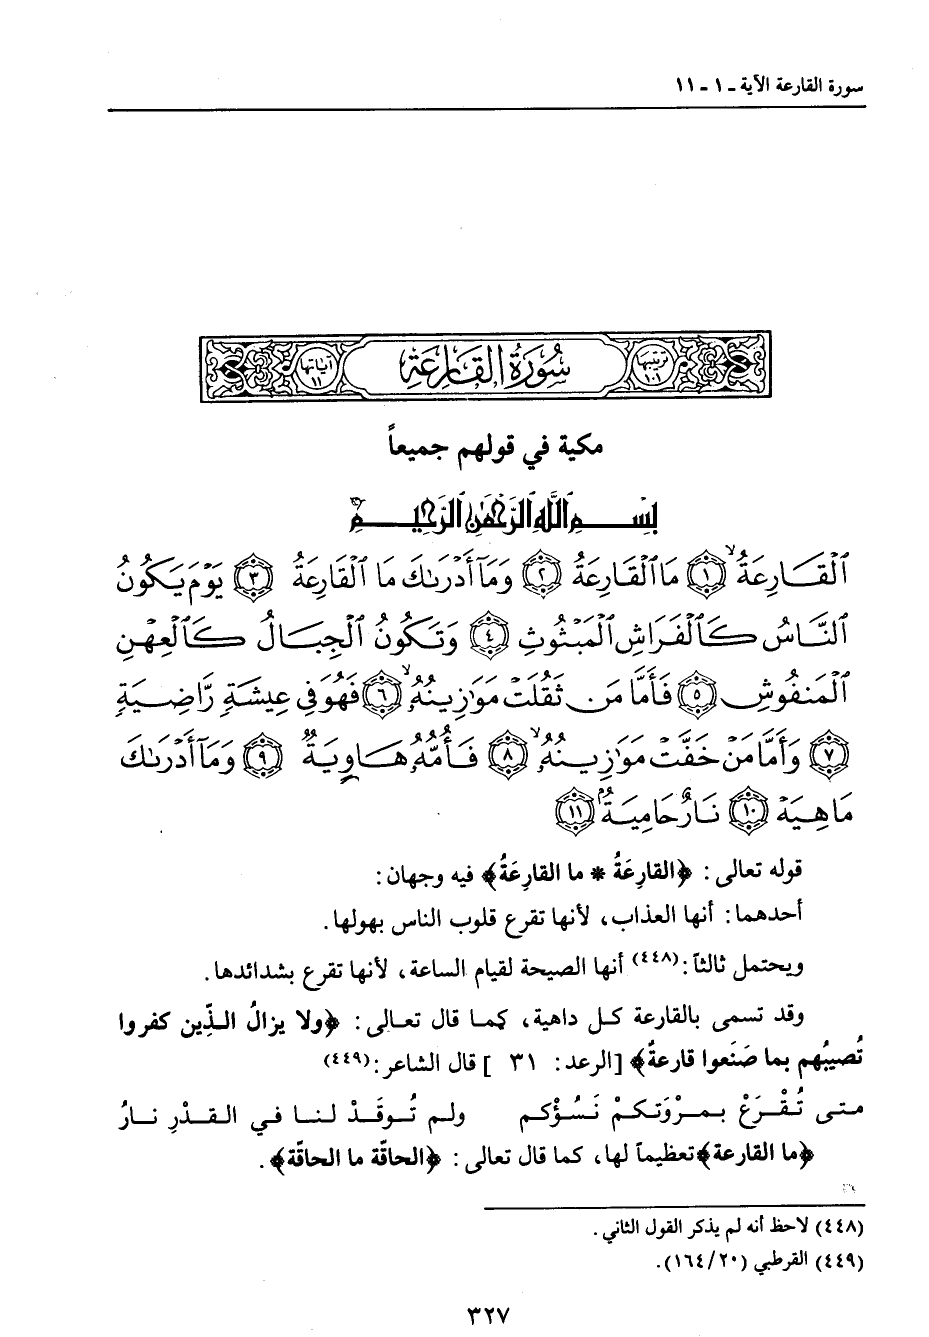 سورة القارعة الآية ـ ١ ـ ١١
ترتيبها ١٠١ سُورَةُ القَارِعَةِ آياتها ١١
مكية في قولهم جميعاً
بِسْمِ ٱللَّهِ ٱلرَّحْمَٰنِ ٱلرَّحِيمِ
ٱلْقَارِعَةُ ۙ ١ مَا ٱلْقَارِعَةُ ٢ وَمَآ أَدْرَىٰكَ مَا ٱلْقَارِعَةُ ٣ يَوْمَ يَكُونُ
ٱلنَّاسُ كَٱلْفَرَاشِ ٱلْمَبْثُوثِ ٤ وَتَكُونُ ٱلْجِبَالُ كَٱلْعِهْنِ
ٱلْمَنفُوشِ ٥ فَأَمَّا مَن ثَقُلَتْ مَوَٰزِينُهُۥ ۙ ٦ فَهُوَ فِى عِيشَةٍ رَّاضِيَةٍ
٧ وَأَمَّا مَنْ خَفَّتْ مَوَٰزِينُهُۥ ۙ ٨ فَأُمُّهُۥ هَاوِيَةٌ ٩ وَمَآ أَدْرَىٰكَ
مَا هِيَهْ ١٠ نَارٌ حَامِيَةٌۢ ١١
قوله تعالى : ﴿القارِعَةُ * ما القارِعَةُ﴾ فيه وجهان :
أحدهما : أنها العذاب ، لأنها تقرع قلوب الناس بهولها .
ويحتمل ثالثاً :(٤٤٨) أنها الصيحة لقيام الساعة ، لأنها تقرع بشدائدها .
وقد تسمى بالقارعة كل داهية ، كما قال تعالى : ﴿ولا يزالُ الذِّين كفروا
تُصيبُهم بما صَنَعوا قارعةٌ﴾ [الرعد : ٣١ ] قال الشاعر :(٤٤٩)
متى تُقْرَعْ بمرْوَتكمْ نَسُؤْكم ولم تُوقَدْ لنا في القدْرِ نارُ
﴿ما القارعة﴾تعظيماً لها، كما قال تعالى : ﴿الحاقّة ما الحاقّة﴾ .
(٤٤٨) لاحظ أنه لم يذكر القول الثاني .
(٤٤٩) القرطبي (١٦٤/٢٠).
٣٢٧